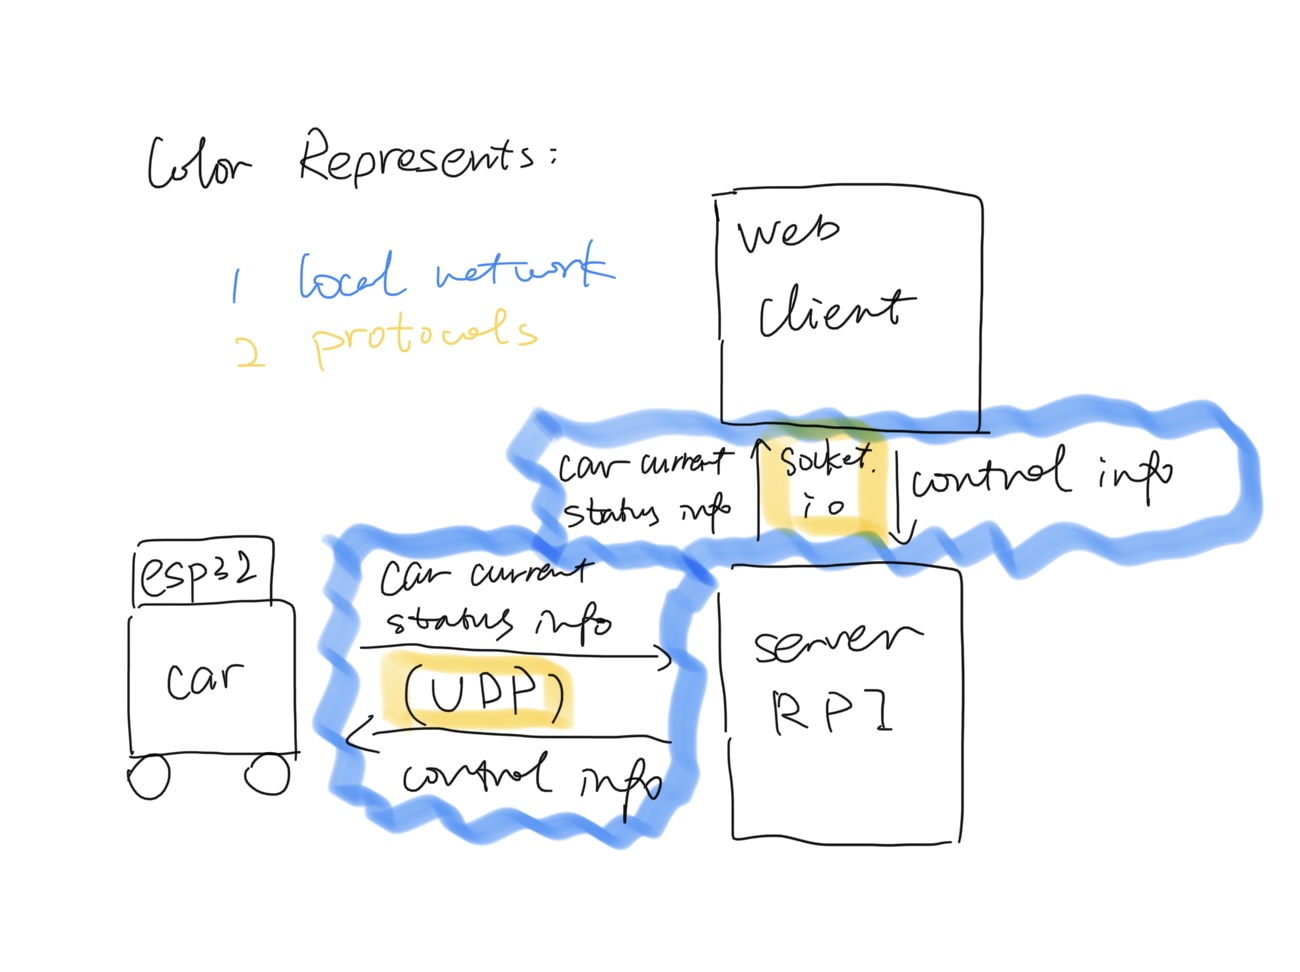 Color Represents:
1 local network
2 protocols
web
client
car current
status info
socket.
io
control info
esp32
car
car current
status info
(UDP)
control info
server
RPI